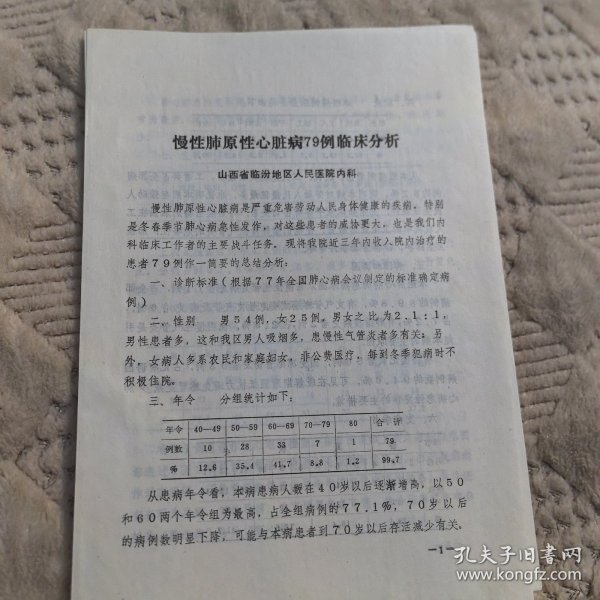 慢性肺原性心脏病79例临床分析
山西省临汾地区人民医院内科
慢性肺原性心脏病是严重危害劳动人民身体健康的疾病。特别
是冬春季节肺心病急性发作，对这些患者的威胁更大，也是我们内
科临床工作者的主要战斗任务。现将我院近三年内收入院内治疗的
患者79例作一简要的总结分析：
一、诊断标准（根据77年全国肺心病会议制定的标准确定病
例）
二、性别 男54例，女25例。男女之比为2.1：1，
男性患者多，这和我区男人吸烟多，患慢性气管炎者多有关；另
外，女病人多系农民和家庭妇女，非公费医疗，每到冬季犯病时不
积极住院。
三、年令 分组统计如下：
年令 40—49 50—59 60—69 70—79 80 合计
例数 10 28 33 7 1 79
% 12.6 35.4 41.7 8.8 1.2 99.7
从患病年令看，本病患病人数在40岁以后逐渐增高，以50
和60两个年令组为最高，占全组病例的77.1%，70岁以后
的病例数明显下降，可能与本病患者到70岁以后存活减少有关。
—1—
孔夫子旧书网
www.kongfz.com